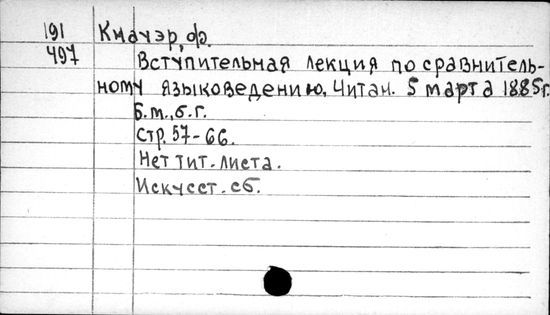 191 Кнауэр, Ф.
497 Вступительная лекция по сравнитель-
ному языковедению, Читан. 5 марта 1885г.
Б.м., б.г.
Стр. 57-66.
Нет тит. листа.
Искусст. сб.